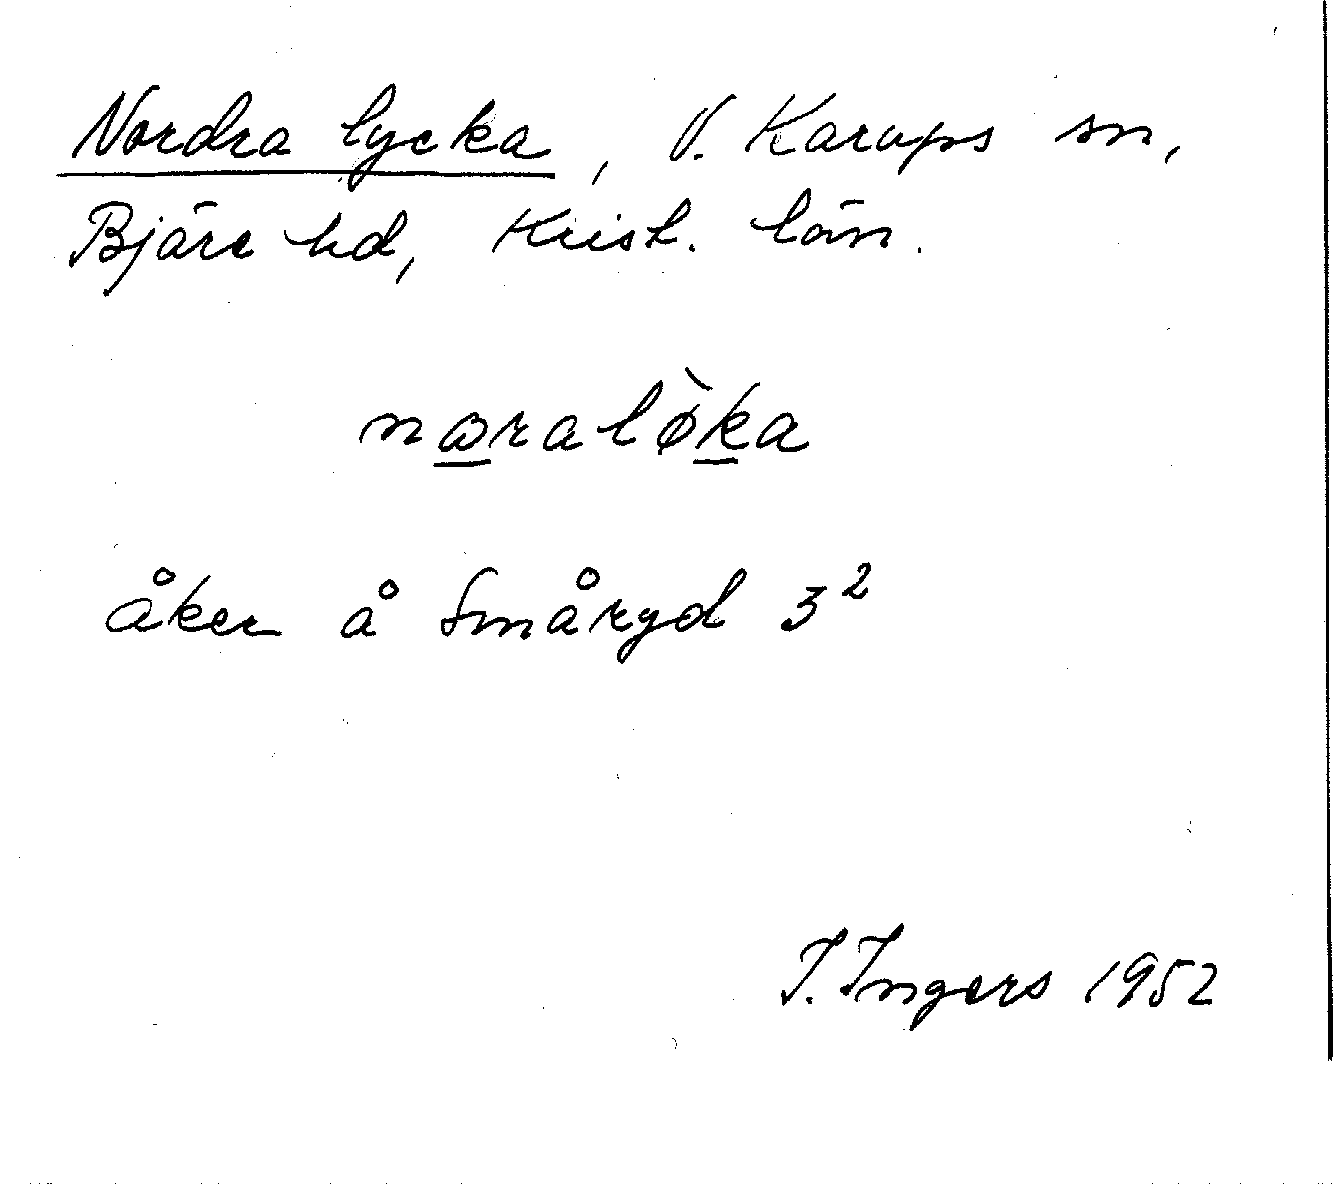 Nordra lycka, V. Karups sn,
Bjäre hd, Krist. län.
nɷralø̀ka
åker å Småryd 3²
I. Ingers 1952